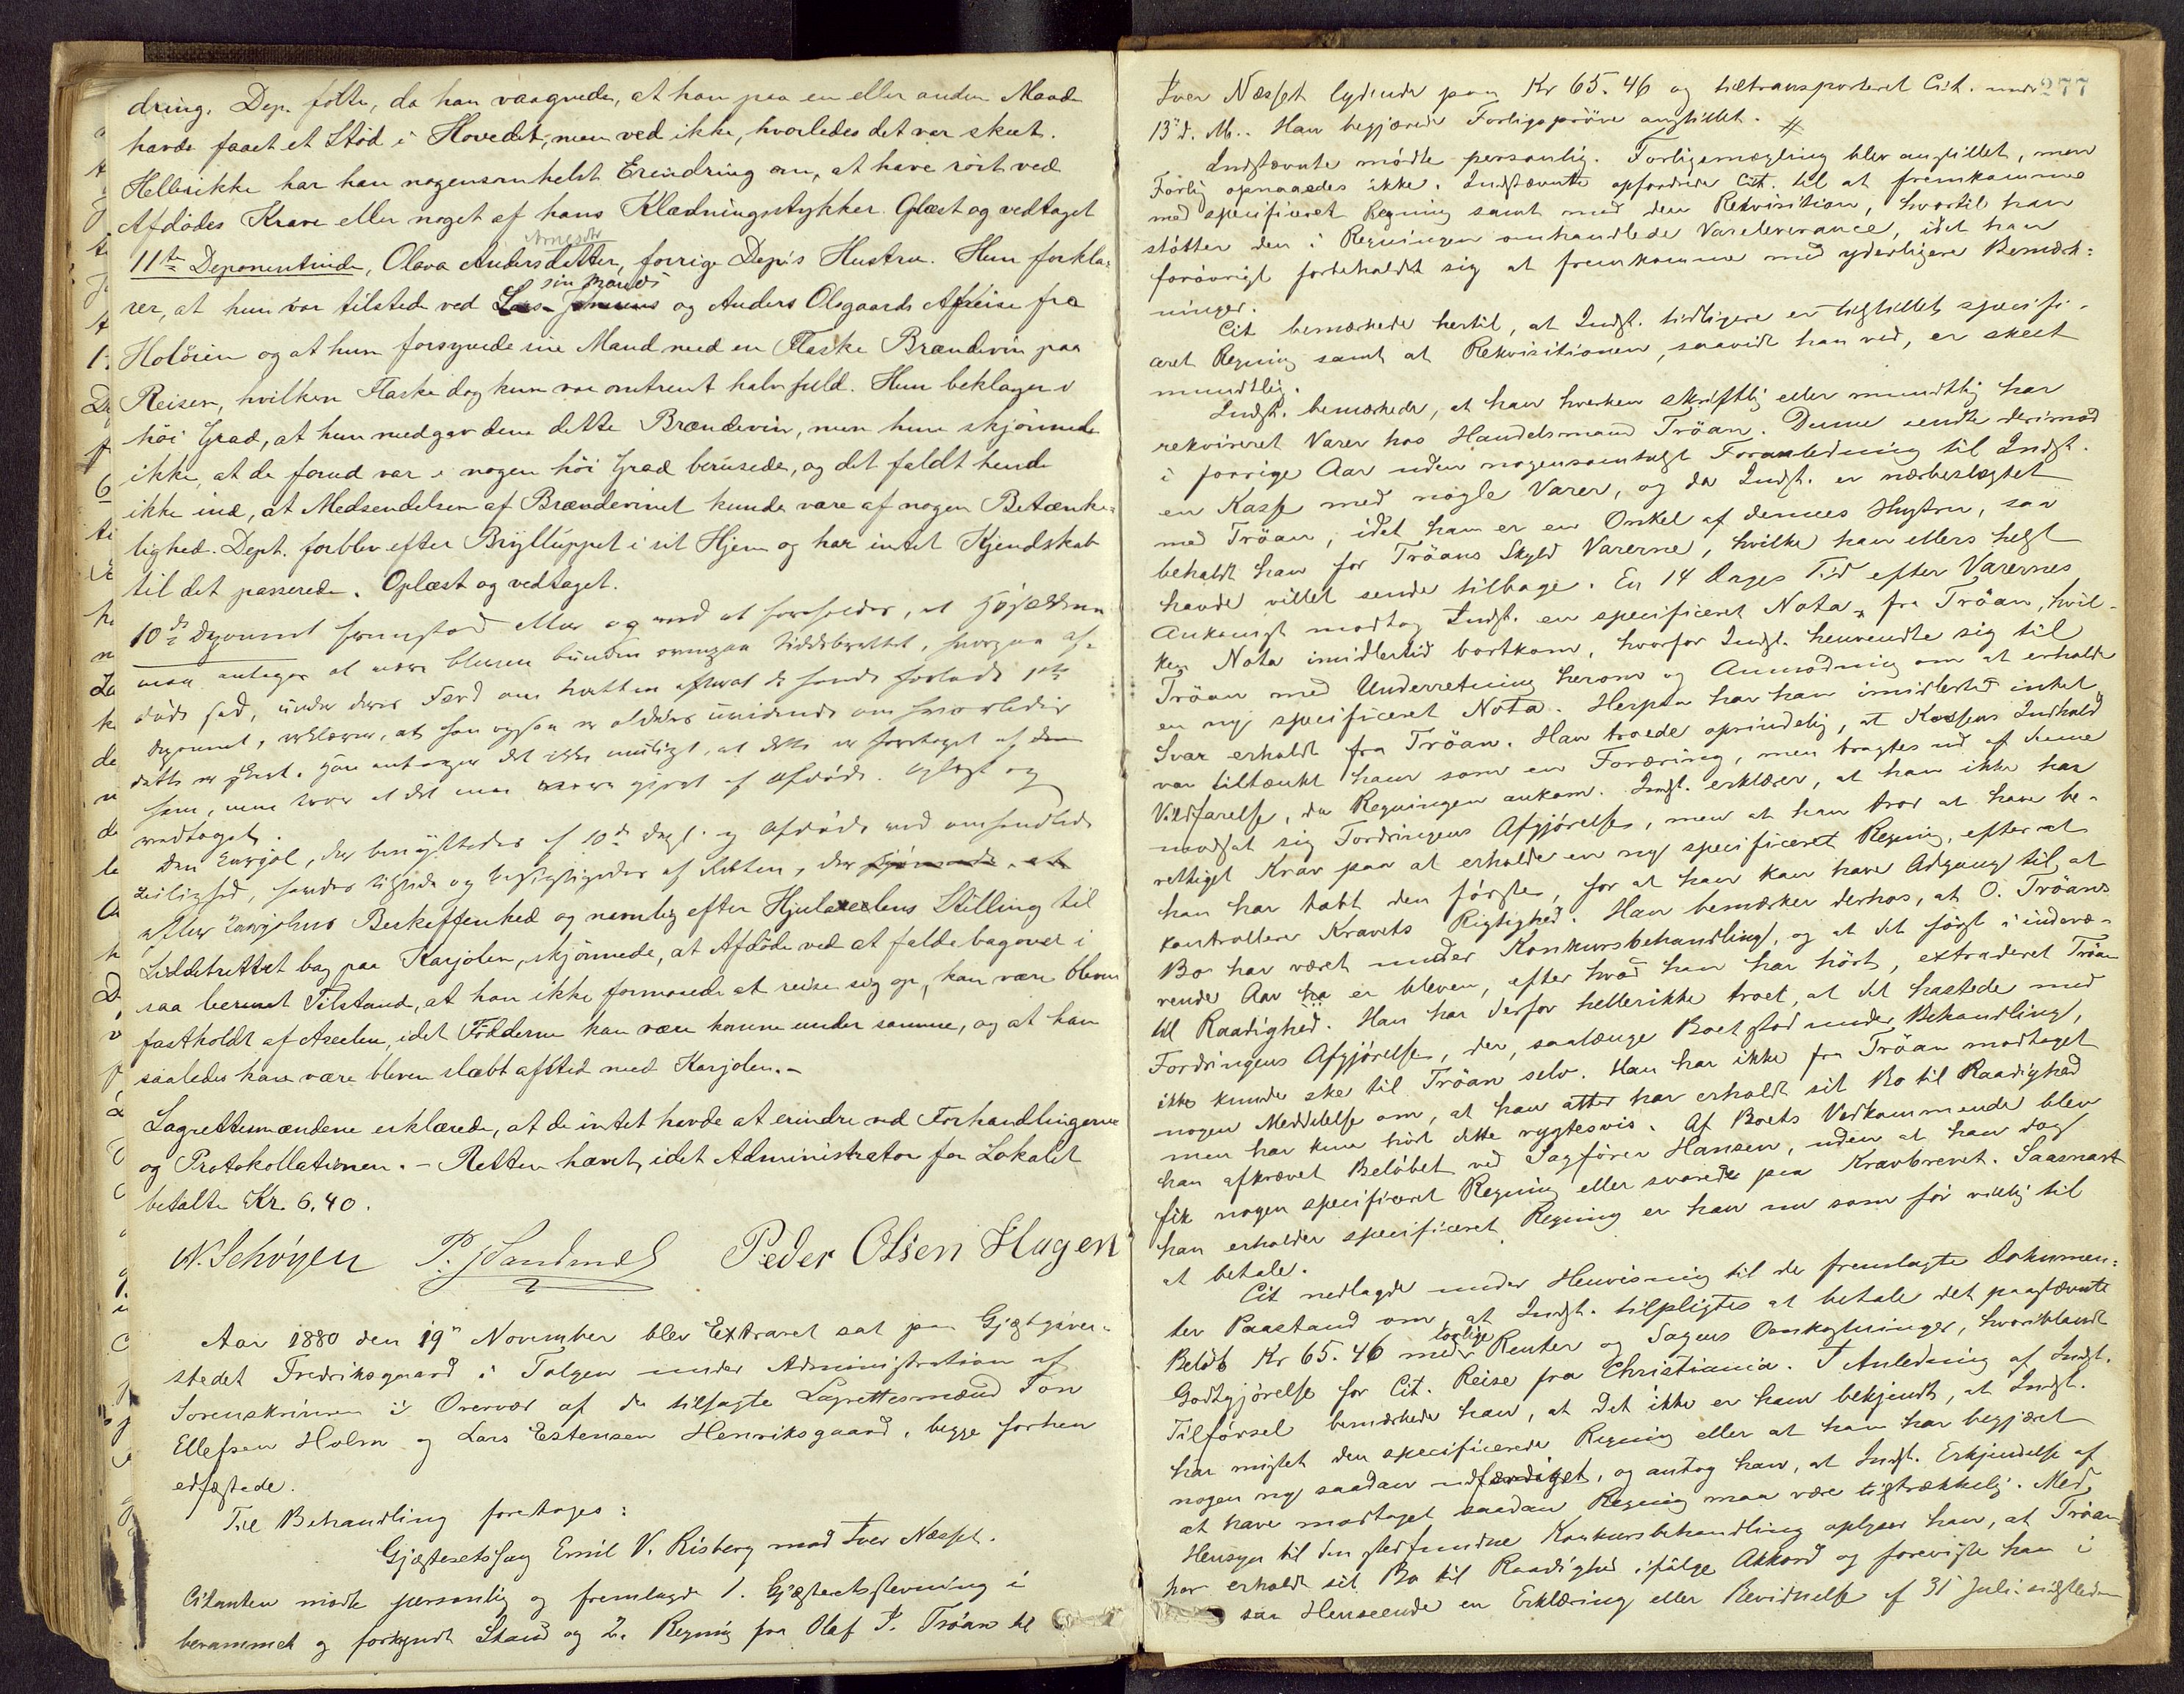 dring. Dep. følte, da han vaagnede, at han paa en eller anden Maade
havde faaet et Stød i Hovedet, men ved ikke, hvorledes det var skeet.
Hellerikke har han nogensomhelst Erindring om, at have rört ved
Afdødes Krave eller noget af hans Klædningsstykker. Oplæst og vedtaget
Arnesdtr
11te Deponentinde, Olava Andersdatter, forrige Dep's Hustru. Hun forkla-
sin Mands
rer, at hun var tilstede ved og Anders Olsgaards Afreise fra
Holöien og at hun forsynede sin Mand med en Flaske Brændevin paa
Reisen, hvilken Flaske dog kun var omtrent halv fuld. Hun beklager i
höi Grad, at hun medgav dem dette Brændevin, men hun skjönnede
ikke, at de forud var i nogen höi Grad berusede, og det faldt hende
ikke ind, at Medsendelsen af Brændevinet kunde være af nogen Betænke-
lighed. Dept. forblev efter Brylluppet i sit Hjem og har intet Kjendskab
til det passerede. Oplæst og vedtaget.
10de Deponent fremstod atter og ved at foreholdes, at
maa antages at være bleven bunden Siddebrettet, hvorpaa af-
døde sad, under deres Færd om Natten efterat de havde forladt 1ste
Deponent, erklærer, at han ogsaa er aldeles uvidende om hvorledes
dette er skeet. Han antager det ikke muligt, at dette er foretaget af den
ham, men tror at det maa være gjort af Afdøde. Oplæst og
vedtaget.
Den Karjol, der benyttedes af 10de Dep. og Afdøde ved omhandlede
Leilighed, havdes tilstede og besigtigedes af Retten, der skjønnede, at
efter Karjolens Beskaffenhed og navnlig efter Hjulaxelens Stilling til
Siddebrettet bag paa Karjolen, skjönnede, at Afdöde ved at falde bagover i
saa beruset Tilstand, at han ikke formaaede at reise sig op, kan være bleven
fastholdt af Axelen, idet Födderne kan være komne under samme, og at han
saaledes kan være bleven slæbt afsted med Karjolen. -
Lagrettemændene erklærede, at de intet havde at erindre ved Forhandlingerne
og Protokollationen. - Retten hævet, idet Administrator for Lokalet
betalte Kr. 6,40.
N. Schöyen P. Sandmæl Peder Olsen Hagen
Aar 1880 den 19de November blev Extraret sat paa Gjæstgiver-
stedet Fredriksgaard i Tolgen under Administration af
Sorenskriveren i Overvær af de tilsagte Lagrettesmænd Jon
Ellefsen Holm og Lars Estensen Henriksgaard, begge forhen
edfæstede.
Til Behandling foretages:
Gjæsteretssag Emil V. Risberg mod Iver Næsset.
Citanten mödte personlig og fremlagde 1. Gjæsteretsstevning i
berammet og forkyndt Stand og 2. Regning fra Olaf P. Tröan til
277
Iver Næsset lydende paa Kr 65.46 og tiltransporteret Cit. under
13de d. M.. Han begjærede Forligspröve anstillet. #
Indstævnte mödte personlig. Forligsmægling blev anstillet, men
Forlig opnaaedes ikke. Indstævnte opfordrede Cit. til at fremkomme
med specificeret Regning samt med den Rekvisition, hvortil han
stötter den i Regningen omhandlede Vareleverance, idet han
forövrigt forbeholdt sig at fremkomme med yderligere Bemærk-
ninger.
Cit bemærkede hertil, at Indst. tidligere er tilstillet specifi-
ceret Regning samt at Rekvisitionen, saavidt han ved, er skeet
mundtlig.
Indst. bemærkede, at han hverken skriftlig eller mundtlig har
rekvireret Varer hos Handelsmand Tröan. Denne sendte derimod
i forrige Aar uden nogensomhelst Foranledning til Indst.
en Kasse med nogle Varer, og da Indst. er nærbeslægtet
med Tröan, idet han er en Onkel af dennes Hustru, saa
beholdt han for Tröans Skyld Varerne, hvilke han ellers helst
havde villet sende tilbage. En 14 Dages Tid efter Varernes
Ankomst modtog Indst. en specificeret Nota fra Tröan, hvil-
ken Nota imidlertid bortkom, hvorfor Indst. henvendte sig til
Tröan med Underretning herom og Anmodning om at erholde
en ny specificeret Nota. Herpaa har han imidlertid intet
Svar erholdt fra Tröan. Han troede oprindelig, at Kassens Indhold
var tiltænkt ham som en Foræring, men bragtes ud af denne
Vildfarelse, da Regningen ankom. Indst. erklærer, at han ikke har
modsat sig Fordringens Afgjörelse, men at han tror at have be-
rettiget Krav paa at erholde en ny specificeret Regning, efterat
han har tabt den förste, for at han kan have Adgang til, at
kontrollere Kravets Rigtighed. Han bemærker derhos, at O. Tröans
Bo har været under Konkursbehandling, og at det först i indevæ-
rende Aar er bleven, efter hvad han har hört, extraderet Tröan
til Raadighed. Han har derfor hellerikke troet, at det hastede med
Fordringens Afgjörelse, der, saalænge Boet stod under Behandling,
ikke kunde ske til Tröan selv. Han har ikke fra Tröan modtaget
nogen Meddelelse om, at han atter har erholdt sit Bo til Raadighed
men har kun hört dette rygtesvis. Af Boets Vedkommende blev
han afkrævet Belöbet ved Sagförer Hansen, uden at han dog
fik nogen specificeret Regning eller svarede paa Kravbrevet. Saasnart
han erholder specificeret Regning er han nu som för villig til
at betale.
Cit nedlagde under Henvisning til de fremlagte Dokumen-
ter Paastand om, at Indst. tilpligtes at betale det paastævnte
lovlige
Belöb Kr 65.46 med Renter og Sagens Omkostninger, hvoriblandt
Godtgjörelse for Cit. Reise fra Christiania. I Anledning af Indst.
Tilförsel bemærkede han, at det ikke er ham bekjendt, at Indst.
har mistet den specificerede Regning eller at han har begjæret
nogen ny saadan udfærdiget, og antog han, at Indst. Erkjendelse af
at have modtaget saadan Regning maa være tilstrækkelig. Med
Hensyn til den stedfundne Konkursbehandling oplyser han, at Tröan
har erholdt sit Bo til Raadighed ifölge Akkord og foreviste han i
saa Henseende en Erklæring eller Bevidnelse af 31 Juli sidstleden